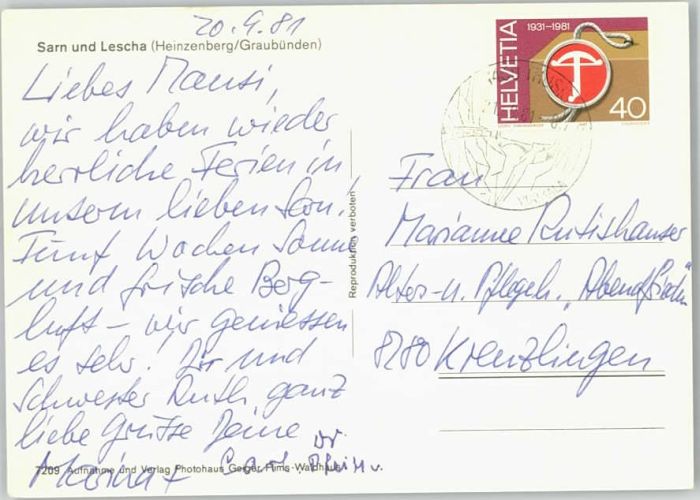 20.9.81
Sarn und Lescha (Heinzenberg/Graubünden)
Liebes Mausi,
wir haben wieder
herrliche Ferien in
unserm lieben Sarn!
Fünf Wochen Sonne
und frische Berg-
luft – wir geniessen
es sehr! Dir und
Schwester Ruth ganz
liebe Grüsse Deine
7209 Aufnahme und Verlag Photohaus Geiger, Flims-Waldhaus
Reproduktion verboten
HELVETIA
1931–1981
40
Frau
Marianne Rutishauser
Alters- u. Pflegeh. „Abendfrieden"
8280 Kreuzlingen